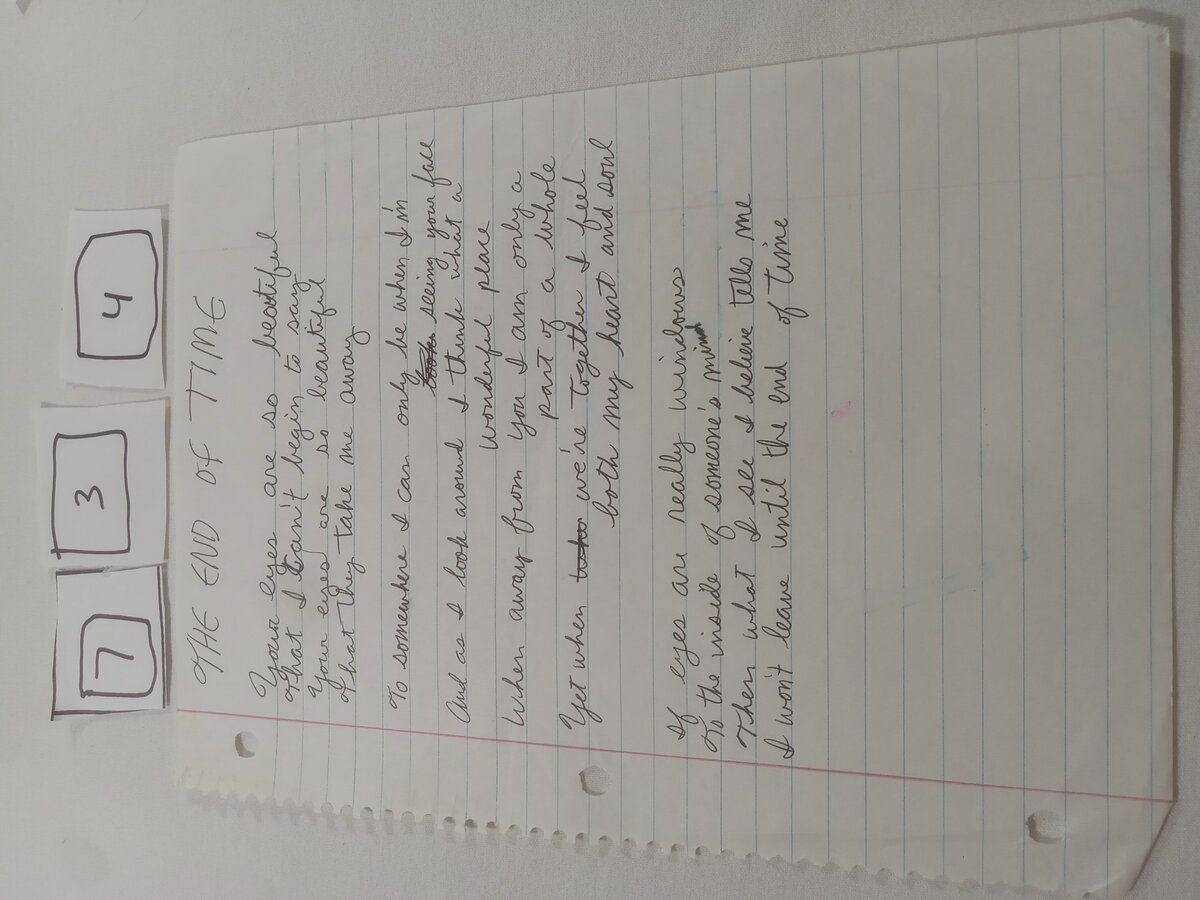 7 3 4
THE END OF TIME
Your eyes are so beautiful
That I can't begin to say
Your eyes are so beautiful
That they take me away
To somewhere I can only be when I'm
seeing your face
And as I look around I think what a
wonderful place
When away from you I am only a
part of a whole
Yet when we're together I feel
both my heart and soul
If eyes are really windows
To the inside of someone's mind
Then what I see I believe tells me
I won't leave until the end of time